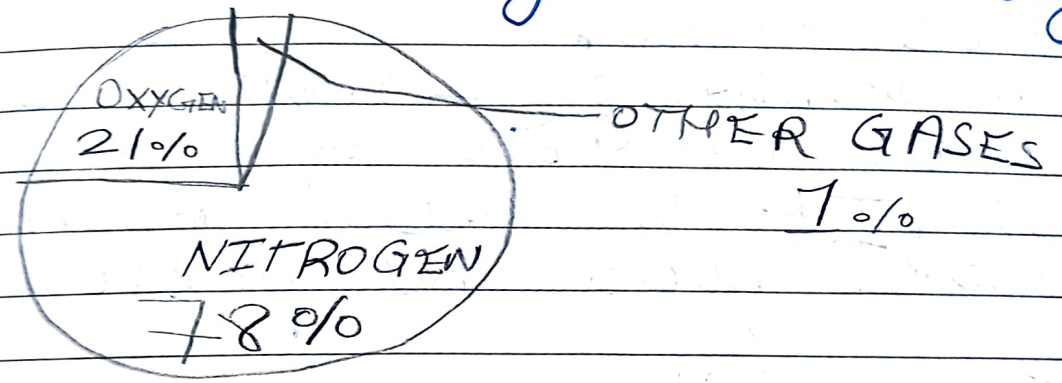 OXYGEN
21%
OTHER GASES
1%
NITROGEN
78%